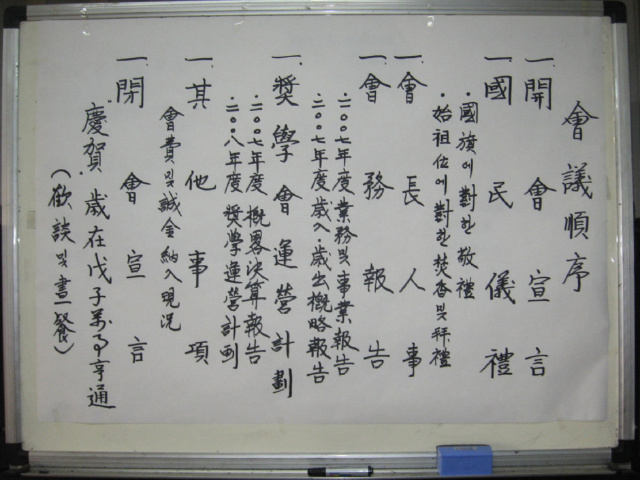 會議順序
一. 開會宣言
一. 國民儀禮
·國旗에 對한 敬禮
·始祖位에 對한 焚香 및 拜禮
一. 會長人事
一. 會務報告
·二00七年度 業務 및 事業報告
·二00七年度 歲入·歲出槪略報告
一. 奬學會運營計劃
·二00七年度 槪畧決算報告
·二00八年度 奬學運營計劃
一. 其他事項
會費 및 誠金 納入現況
一. 閉會宣言
慶賀. 歲在戊子 萬事亨通
(歡談 및 晝餐)